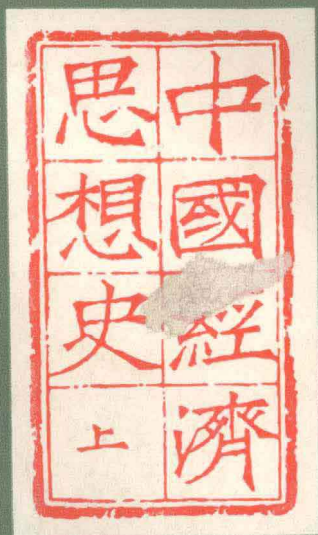 中國經濟
思想史
上